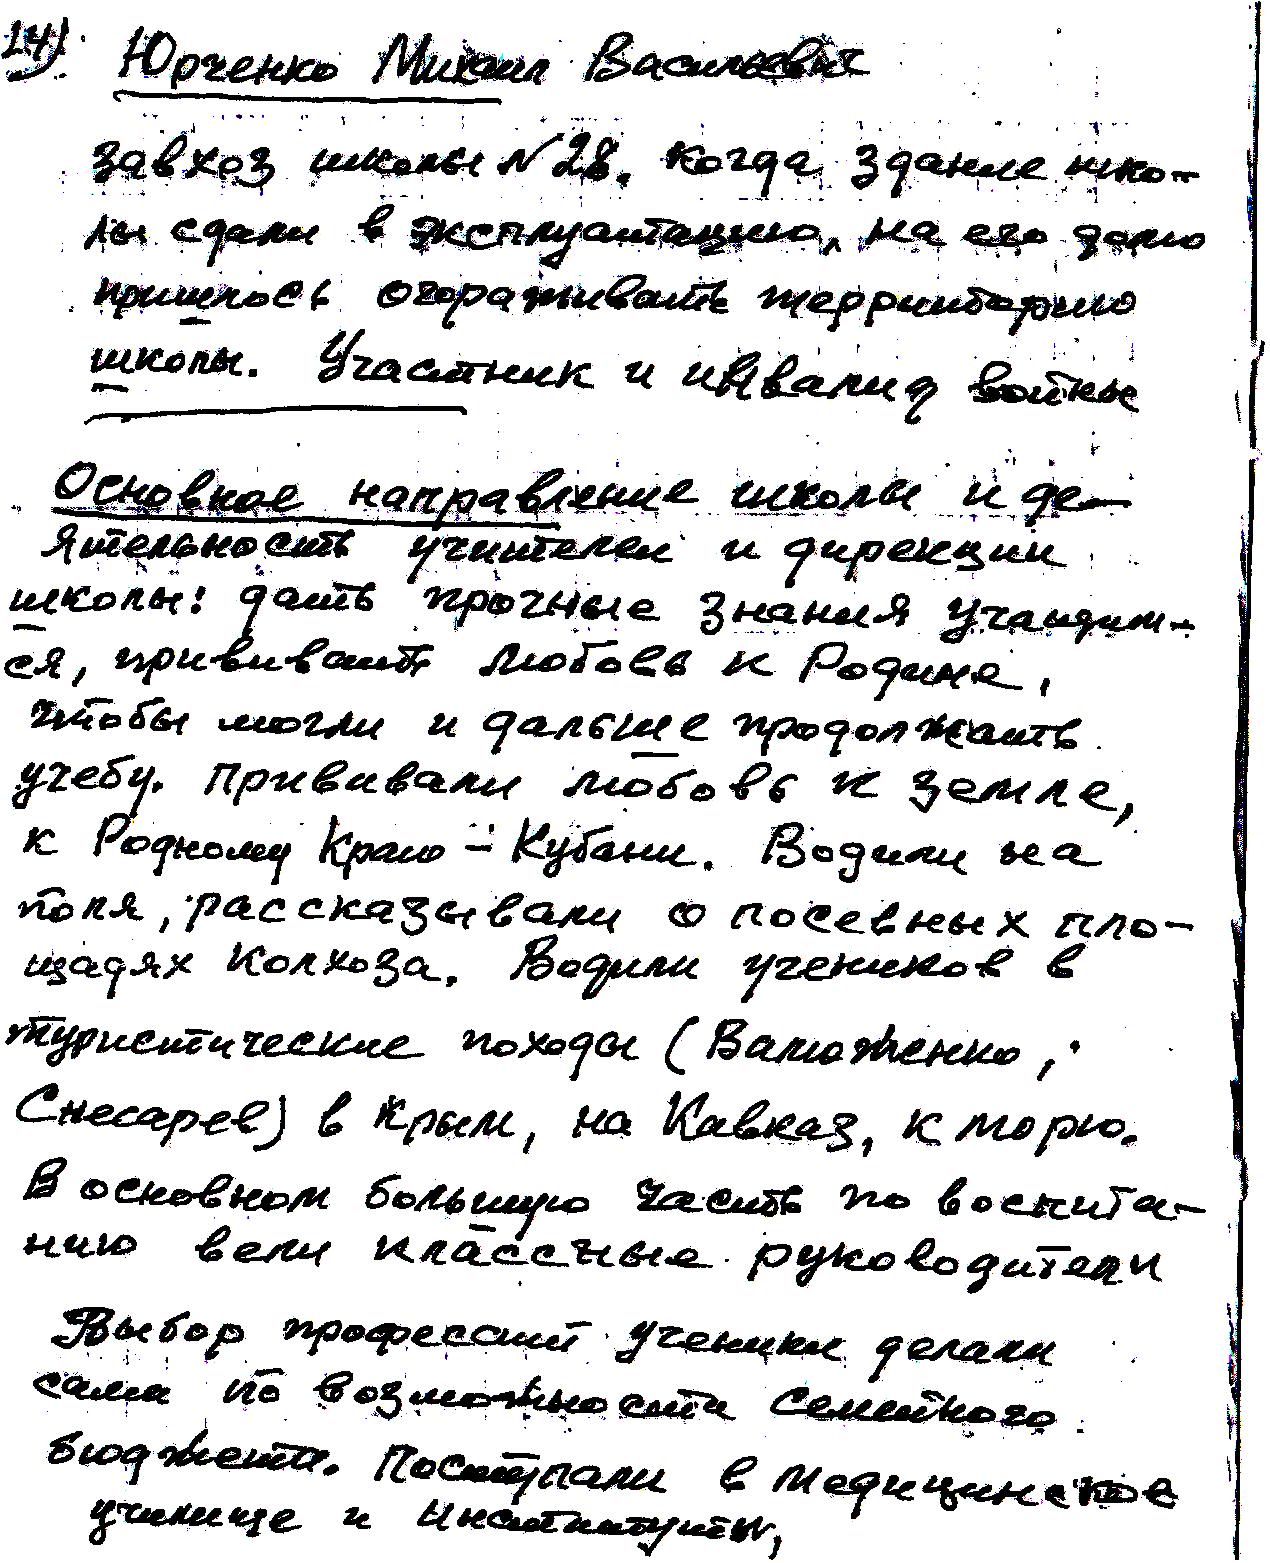 14). Юрченко Михаил Васильевич
завхоз школы № 28. Когда здание шко-
лы сдали в эксплуатацию, на его долю
пришлось огораживать территорию
школы. Участник и инвалид войны
Основное направление школы и де-
ятельность учителей и дирекции
школы: дать прочные знания учащим-
ся, прививать любовь к Родине,
чтобы могли и дальше продолжать
учебу. Прививали любовь к земле,
к Родному Краю - Кубани. Водили на
поля, рассказывали о посевных пло-
щадях колхоза. Водили учеников в
туристические походы (Валюженко,
Снесарев) в Крым, на Кавказ, к морю.
В основном большую часть по воспита-
нию вели классные руководители
Выбор профессий ученики делали
сами по возможности семейного
бюджета. Поступали в медицинское
училище и институты,